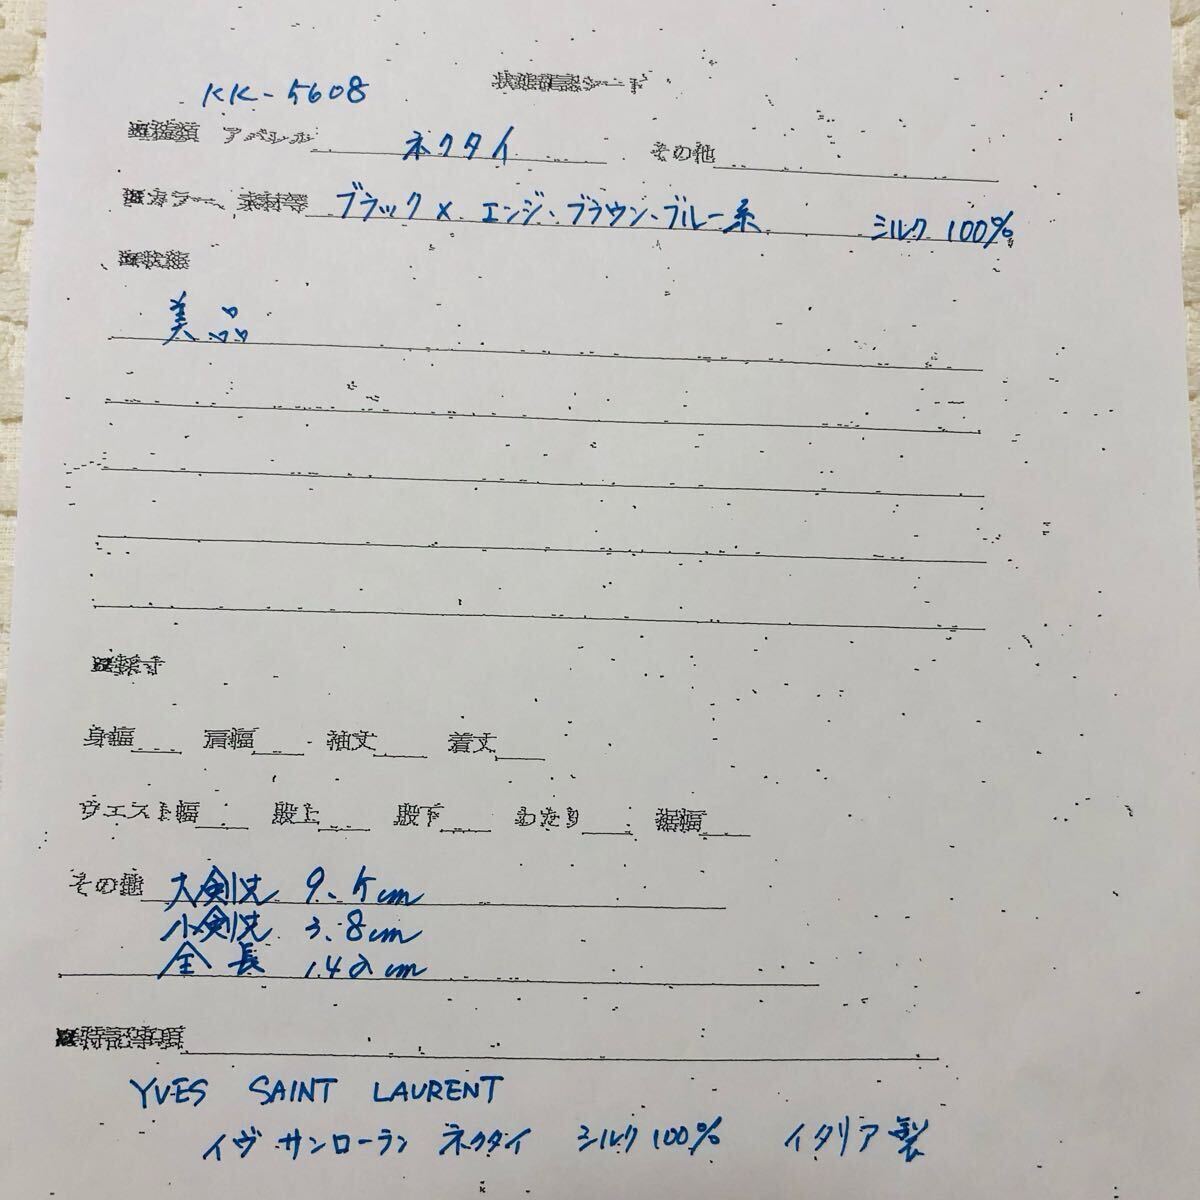 状態確認シート
KK-5608
※種類 アパレル ネクタイ その他
※カラー、素材等 ブラック×エンジ、ブラウン、ブルー系 シルク100%
※状態
美品
※採寸
身幅 肩幅 袖丈 着丈
ウエスト幅 股上 股下 わたり 裾幅
その他 大剣先 9.5cm
小剣先 3.8cm
全長 142cm
※特記事項
YVES SAINT LAURENT
イヴ サンローラン ネクタイ シルク100% イタリア製